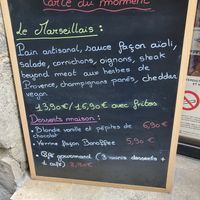 Carte du moment
Le Marseillais :
Pain artisanal, sauce façon aïoli,
salade, cornichons, oignons, steak
beyond meat aux herbes de
Provence, champignons panés, cheddar
vegan.
13,90€/ 16,90€ avec frites
Desserts maison :
• Blondie vanille et pépites de 6,90€
chocolat
• Verrine façon Banoffee 5,90€
• Café gourmand (3 minis desserts +
1 café)